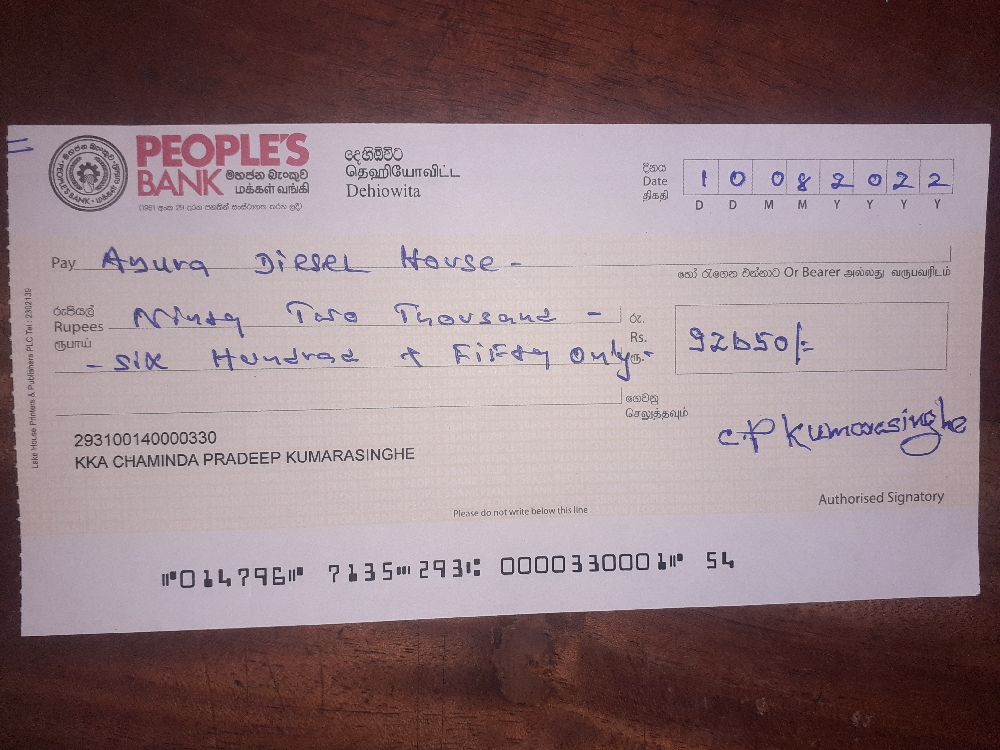 PEOPLE'S
BANK මහජන බැංකුව
மக்கள் வங்கி
(1961 අංක 29 දරන පනතින් සංස්ථාගත කරන ලදී)
දෙහිඕවිට
தெஹியோவிட்ட
Dehiowita
දිනය
Date
திகதி
1 0 0 8 2 0 2 2
D D M M Y Y Y Y
Pay Anura Diesel House -
හෝ රැගෙන එන්නාට Or Bearer அல்லது வருபவரிடம்
රුපියල්
Rupees Ninety Two Thousand -
ரூபாய் - Six Hundred & Fifty Only.-
රු.
Rs.
ரூ.
92650/=
ගෙවනු
செலுத்தவும்
293100140000330
KKA CHAMINDA PRADEEP KUMARASINGHE
C.P Kumarasinghe
Authorised Signatory
Please do not write below this line
⑈014796⑈ 7135⑉293⑆ 0000330001⑈ 54
Lake House Printers & Publishers PLC Tel : 2302139